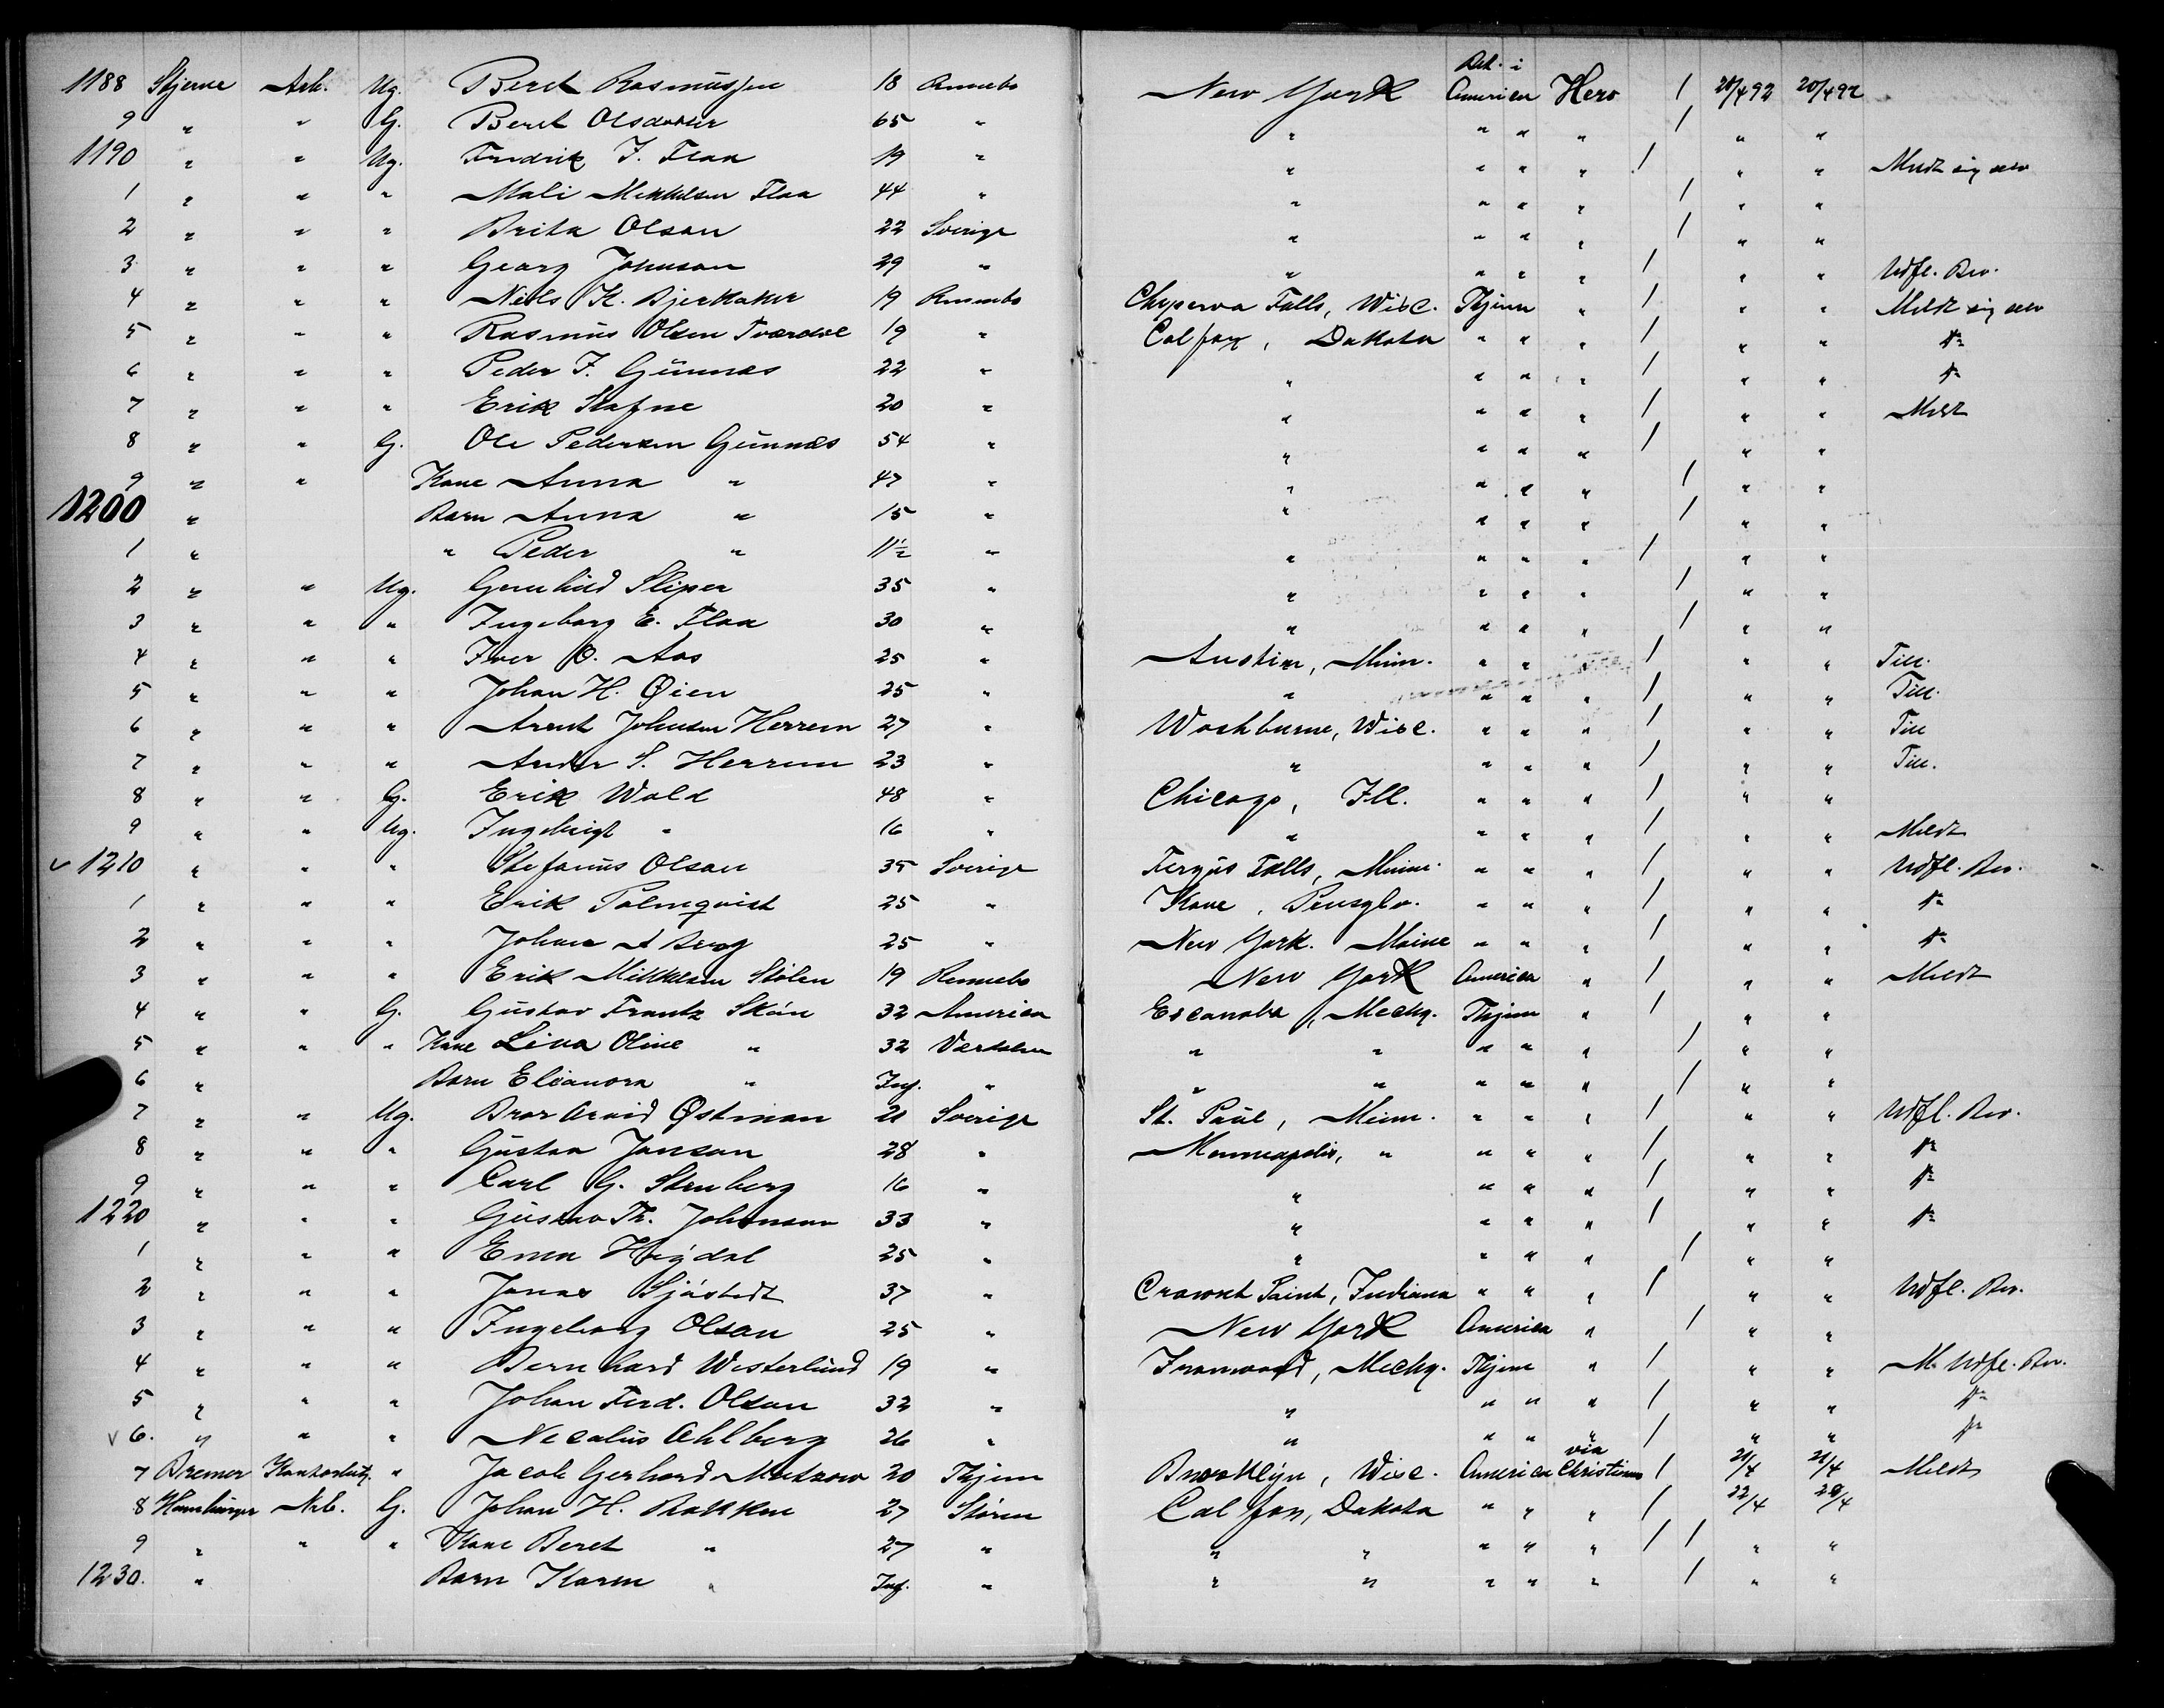 Bet. i
1188 Stjerne Arb. Ug. Beret Rasmussen 18 Rennebo New York America Hero / 20/4 92 20/4 92
9 " " G. Beret Olsdatter 65 " " " " " / " "
1190 " " Ug. Fredrik J. Flaa 19 " " " " " / " " Meldt sig selv
1 " " " Mali Mikkelsen Flaa 44 " " " " " / " "
2 " " " Brita Olsen 22 Sverige " " " " / " "
3 " " " Georg Johnson 29 " " " " " / " " Udfl. Bev.
4 " " " Nils K. Bjerkaker 19 Rennebo Chipewa Falls, Wisc. Thjem " / " " Meldt sig selv
5 " " " Rasmus Olsen Tværdal 19 " Colfax, Dakota " " " / " " "
6 " " " Peder J. Gunnes 22 " " " " " / " " "
7 " " " Erik Stafne 20 " " " " " / " " Meldt
8 " " G. Ole Pedersen Gunnæs 54 " " " " " / " "
9 " " Kone Anna " 47 " " " " " / " "
1200 " Barn Anna " 15 " " " " " / " "
1 " " Peder " 11½ " " " " " / " "
2 " " Ug. Gunhild Sliper 35 " " " " " / " "
3 " " " Ingeborg E. Flaa 30 " " " " " / " "
4 " " " Iver O. Aas 25 " Austin, Minn. " " " / " " Till.
5 " " " Johan H. Øien 25 " " " " " / " " Till.
6 " " " Arent Johnsen Herrem 27 " Washburne, Wisc. " " " / " " Till
7 " " " Ander S. Herrem 23 " " " " " / " " Till.
8 " " G. Erik Wold 48 " Chicago, Ill. " " " / " "
9 " " Ug. Ingebrigt " 16 " " " " " / " " Meldt
1210 " " " Stefanus Olsen 35 Sverige Fergus Falls, Minn. " " " / " " Udfl. Bev.
1 " " " Erik Palmqvist 25 " Kane, Pensylv. " " " / " " "
2 " " " Johan A Berg 25 " New York. Maine " " " / " " "
3 " " " Erik Mikkelsen Stølen 19 Rennebo New York America " / " " Meldt
4 " " G. Gustav Frantz Skån 32 America Escanaba, Mechg. Thjem " / " "
5 " " " Kone Lina Oline " 32 Værdalen " " " " " / " "
6 " Barn Eleanora " Inf. " " " " " " / " "
7 " " Ug. Bror Arvid Østman 21 Sverige St. Paul, Minn. " " " / " " Udfl. Bev.
8 " " " Gustav Janson 28 " Menneapolis, " " " " / " " "
9 " " " Carl G. Stenberg 16 " " " " " / " " "
1220 " " " Gustav Th. Johanson 33 " " " " " / " " "
1 " " " Emma Høgdal 25 " " " " " / " "
2 " " " Jonas Sjöstedt 37 " Crawnt Saint, Indiana " " " / " " Udfl. Bev.
3 " " " Ingeborg Olsen 25 " New York America " / " "
4 " " " Bernhard Westerlund 19 " Ironwood, Mechg. Thjem " / " " M. Udfl. Bev.
5 " " " Johan Ferd. Olson 32 " " " " " / " " "
6. " " " Necalius Ahlberg 26 " " " " " / " " "
via
7 Bremer Kontorbetj. " Jacob Gerhard Matzow 20 Thjem Brooklyn, Wisc. America Christiania / 21/4 21/4 Meldt
8 Hamburger Arb. G. Johan H. Bakken 27 Støren Calfax, Dakota " " " / 22/4 20/4
9 " " " Kone Beret " 27 " " " " " " / / " "
1230. " Barn Karen " Inf. " " " " " " / " "